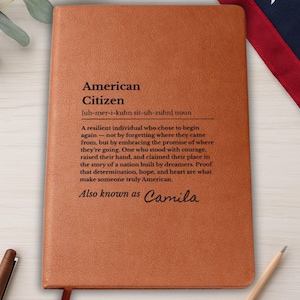 American
Citizen
[uh-mer-i-kuhn sit-uh-zuhn] noun
A resilient individual who chose to begin
again — not by forgetting where they came
from, but by embracing the promise of where
they're going. One who stood with courage,
raised their hand, and claimed their place in
the story of a nation built by dreamers. Proof
that determination, hope, and heart are what
make someone truly American.
Also known as Camila